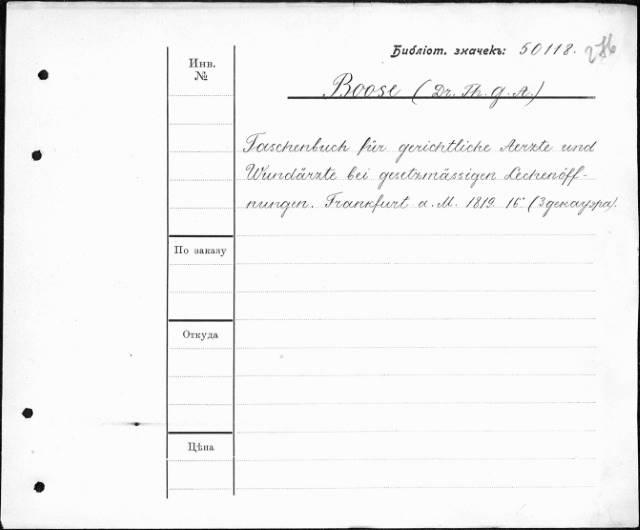 Библіот. значекъ: 50118. 276
Инв. №
Boose (Dr. Th. G. A.)
Taschenbuch für gerichtliche Aerzte und
Wundärzte bei gesetzmässigen Lechenöff-
nungen. Frankfurt a. M. 1819 16° (3 декауэра).
По заказу
Откуда
Цѣна